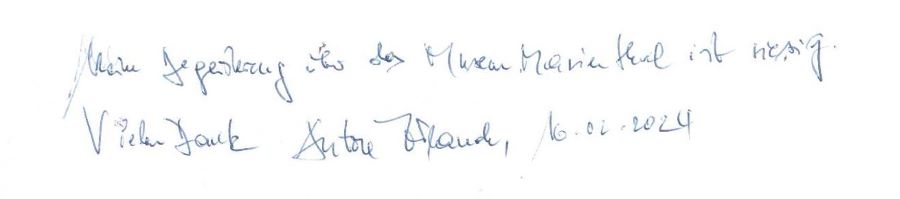 Meine Begeisterung über das Museum Marienthal ist riesig.
Vielen Dank 16.02.2024